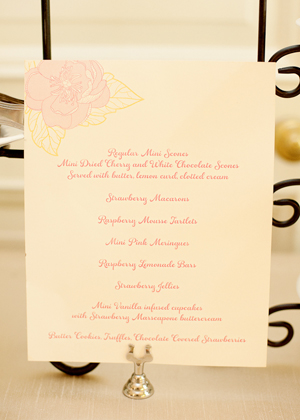 Regular Mini Scones
Mini Dried Cherry and White Chocolate Scones
Served with butter, lemon curd, clotted cream
Strawberry Macarons
Raspberry Mousse Tartlets
Mini Pink Meringues
Raspberry Lemonade Bars
Strawberry Jellies
Mini Vanilla infused cupcakes
with Strawberry Marscapone buttercream
Butter Cookies, Truffles, Chocolate Covered Strawberries